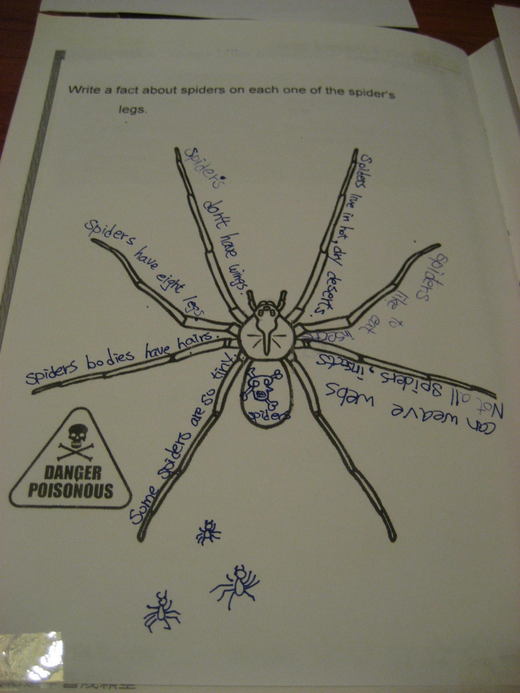 Write a fact about spiders on each one of the spider's
legs.
Spiders don't have wings
Spiders live in hot, dry deserts.
Spiders have eight legs.
Spiders like to eat insects
Spiders bodies have hairs.
Not all spiders, insects
can weave webs
Some spiders are so tiny.
DANGER
POISONOUS